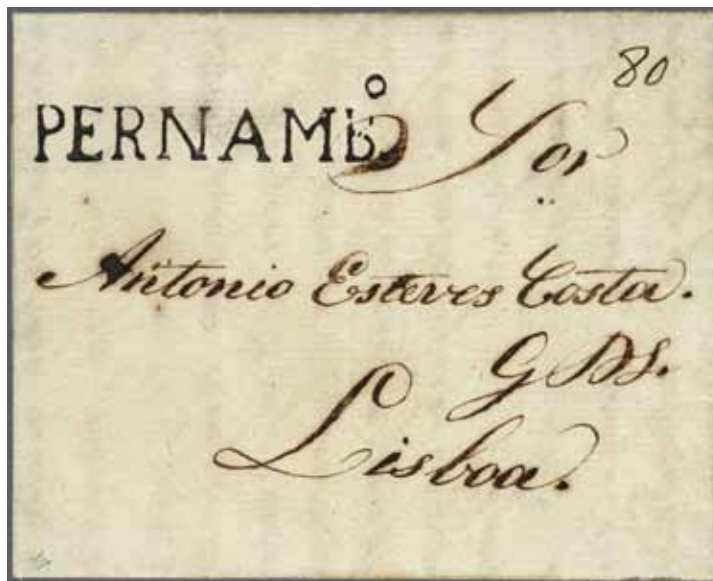 80
PERNAMBº Sor
Antonio Esteves Costa.
G DS.
Lisboa.